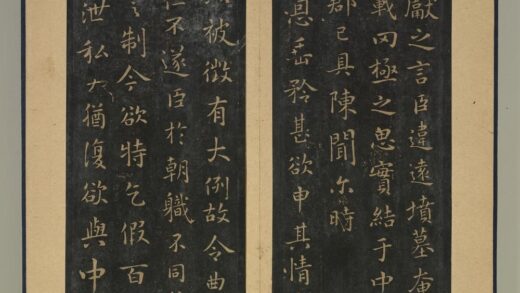 獻之言臣違遠墳墓奄
載罔極之思實結于中
郡已具陳聞尓時
息垂矜甚欲申其情
被徵有大例故令曲
不遂臣於朝職不同
制今欲特乞假百
泄私猶復欲與中